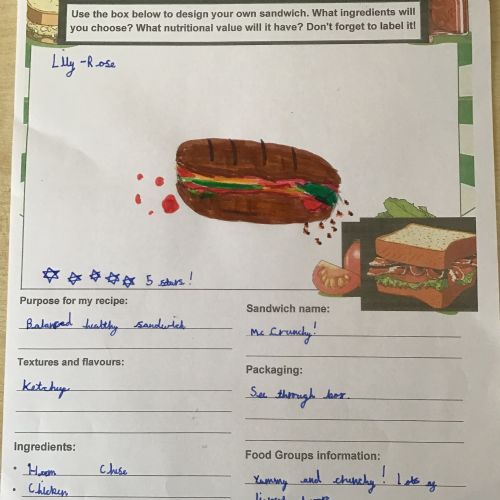 Use the box below to design your own sandwich. What ingredients will
you choose? What nutritional value will it have? Don't forget to label it!
Lily-Rose
5 stars!
Purpose for my recipe:
Balanced healthy sandwich
Textures and flavours:
Ketchup
Ingredients:
• Ham Chese
• Chicken
Sandwich name:
Mc Crunchy!
Packaging:
See through box.
Food Groups information:
Yummy and crunchy! Lots of